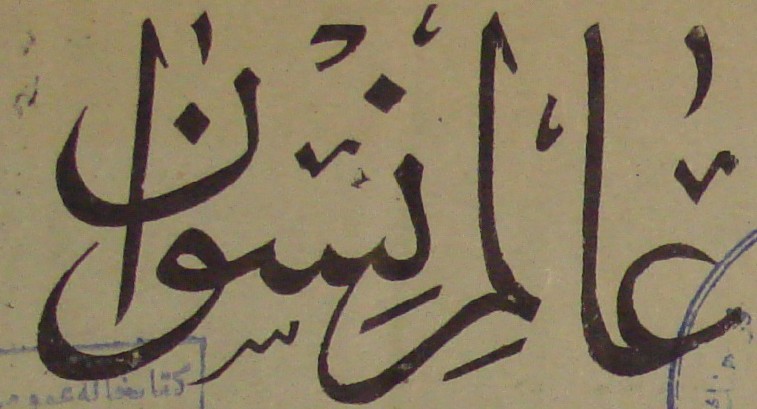 عالم نسوان
کتابخانه عمومی